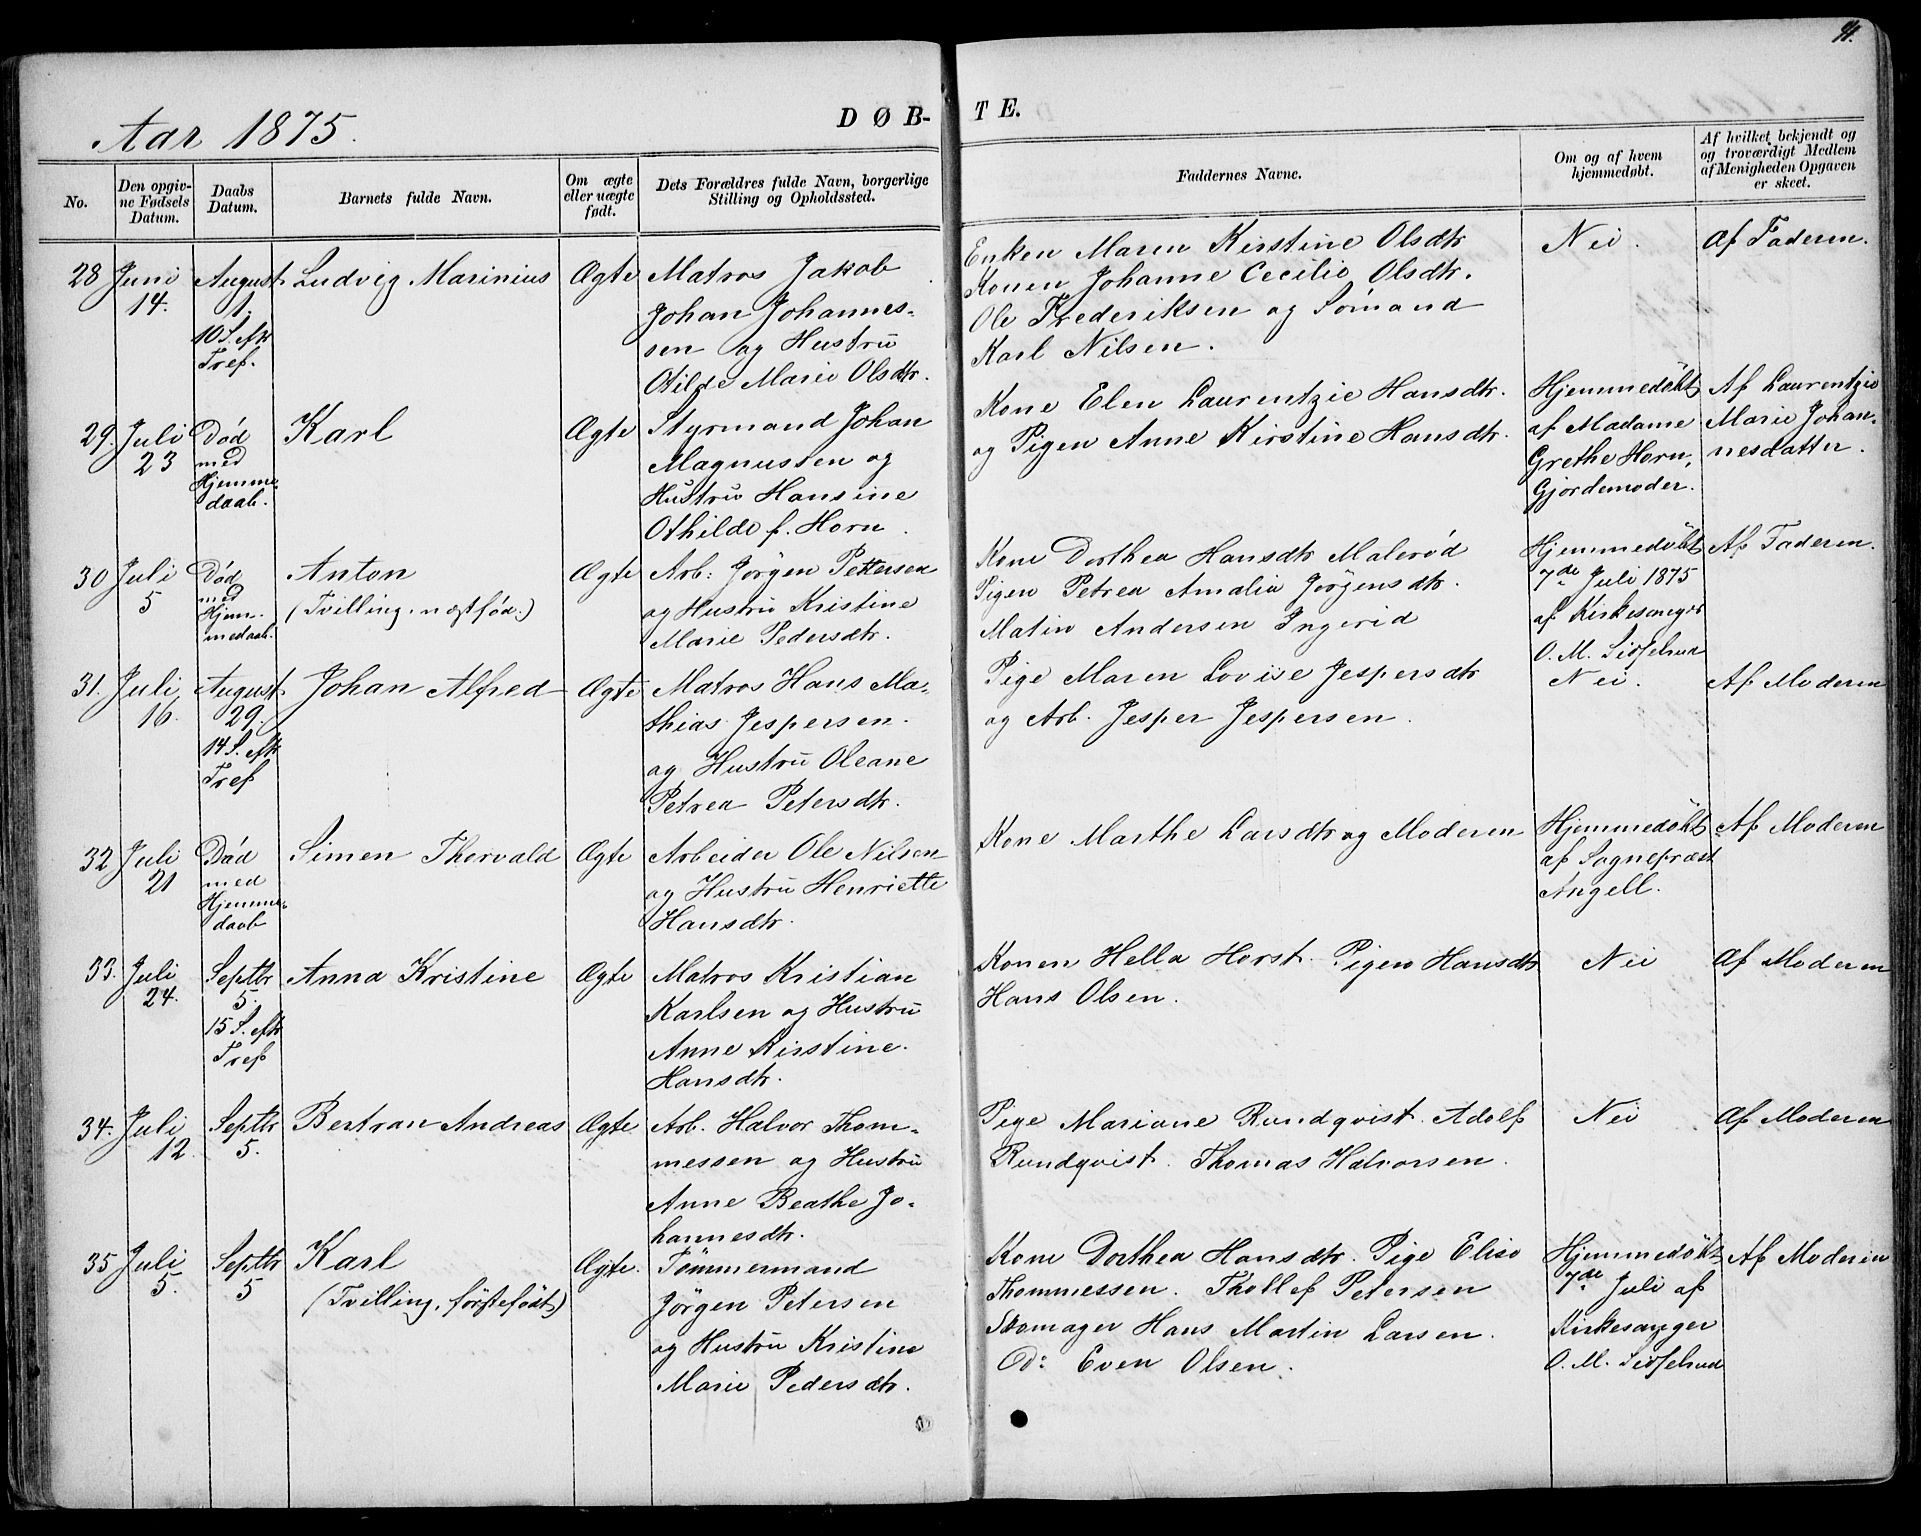 91.
Aar 1875.
DØB-
TE.
No.
Den opgiv-
ne Fødsels
Datum.
Daabs
Datum.
Barnets fulde Navn.
Om ægte
eller uægte
født.
Dets Forældres fulde Navn, borgerlige
Stilling og Opholdssted.
Faddernes Navne.
Om og af hvem
hjemmedøbt.
Af hvilket bekjendt og
og troværdigt Medlem
af Menigheden Opgaven
er skeet.
28
Juni
14.
August
1.
10 S. eftr
Tref.
Ludvig Marinius
Ægte
Matros Jakob
Johan Johannes-
sen og Hustru
Otilde Marie Olsdtr.
Enken Maren Kirstine Olsdtr
Konen Johanne Cecilie Olsdtr.
Ole Frederiksen og Sømand
Karl Nilsen.
Nei.
Af Faderen.
29.
Juli
23
Død
med
Hjemme-
daab.
Karl
Ægte
Styrmand Johan
Magnussen og
Hustru Hansine
Othilde f. Horn.
Kone Elen Laurentzie Hansdtr.
og Pigen Anne Kirstine Hansdtr.
Hjemmedøbt
af Madame
Grethe Horn,
Gjordemoder.
Af Laurentzie
Marie Johan-
nesdatter.
30
Juli
5
Død
med
Hjem-
medaab.
Anton
(Tvilling, næstfød.)
Ægte
Arb: Jørgen Pettersen
og Hustru Kristine
Marie Pedersdtr.
Kone Dorthea Hansdtr Malerød
Pigen Petrea Amalia Jørgensdtr.
Matin Andersen Ingerid
Hjemmedøbt
7de Juli 1875
af Kirkesanger
O. M.
Af Faderen.
31.
Juli
16.
August
29.
14 S. eftr
Tref
Johan Alfred
Ægte
Matros Hans Ma-
thias Jespersen.
og Hustru Oleane
Petrea Petersdtr.
Pige Maren Lovise Jespersdtr
og Arb. Jesper Jespersen.
Nei.
Af Moderen
32
Juli
21
Død
med
Hjemme-
daab
Simen Thorvald
Ægte
Arbeider Ole Nilsen
og Hustru Henriette
Hansdtr.
Kone Marthe Larsdtr og Moderen
Hjemmedøbt
af Sognepræst
Angell.
Af Moderen
33.
Juli
24.
Septbr
5.
15 S. eftr
Tref
Anna Kristine
Ægte
Matros Kristian
Karlsen og Hustru
Anne Kirstine.
Hansdtr.
Konen Hella Horst. Pigen Hansdtr
Hans Olsen.
Nei
Af Moderen
34.
Juli
12
Septbr
5.
Bertran Andreas
Ægte
Arb. Halvor Thom-
messen og Hustru
Anne Beathe Jo-
hannesdtr.
Pige Mariane Rundqvist. Adolf
Rundqvist. Thomas Halvorsen.
Nei
Af Moderen
35
Juli
5.
Septbr
5
Karl
(Tvilling, førstefødt)
Ægte.
Tømmermand
Jørgen Petersen
og Hustru Kristine
Marie Pedersdtr.
Kone Dorthea Hansdtr. Pige Elise
Thommessen. Thollef Petersen
Skomager Hans Martin Larsen.
Do: Even Olsen.
Hjemmedøbt
7de Juli af
Kirkesanger
O. M.
Af Moderen